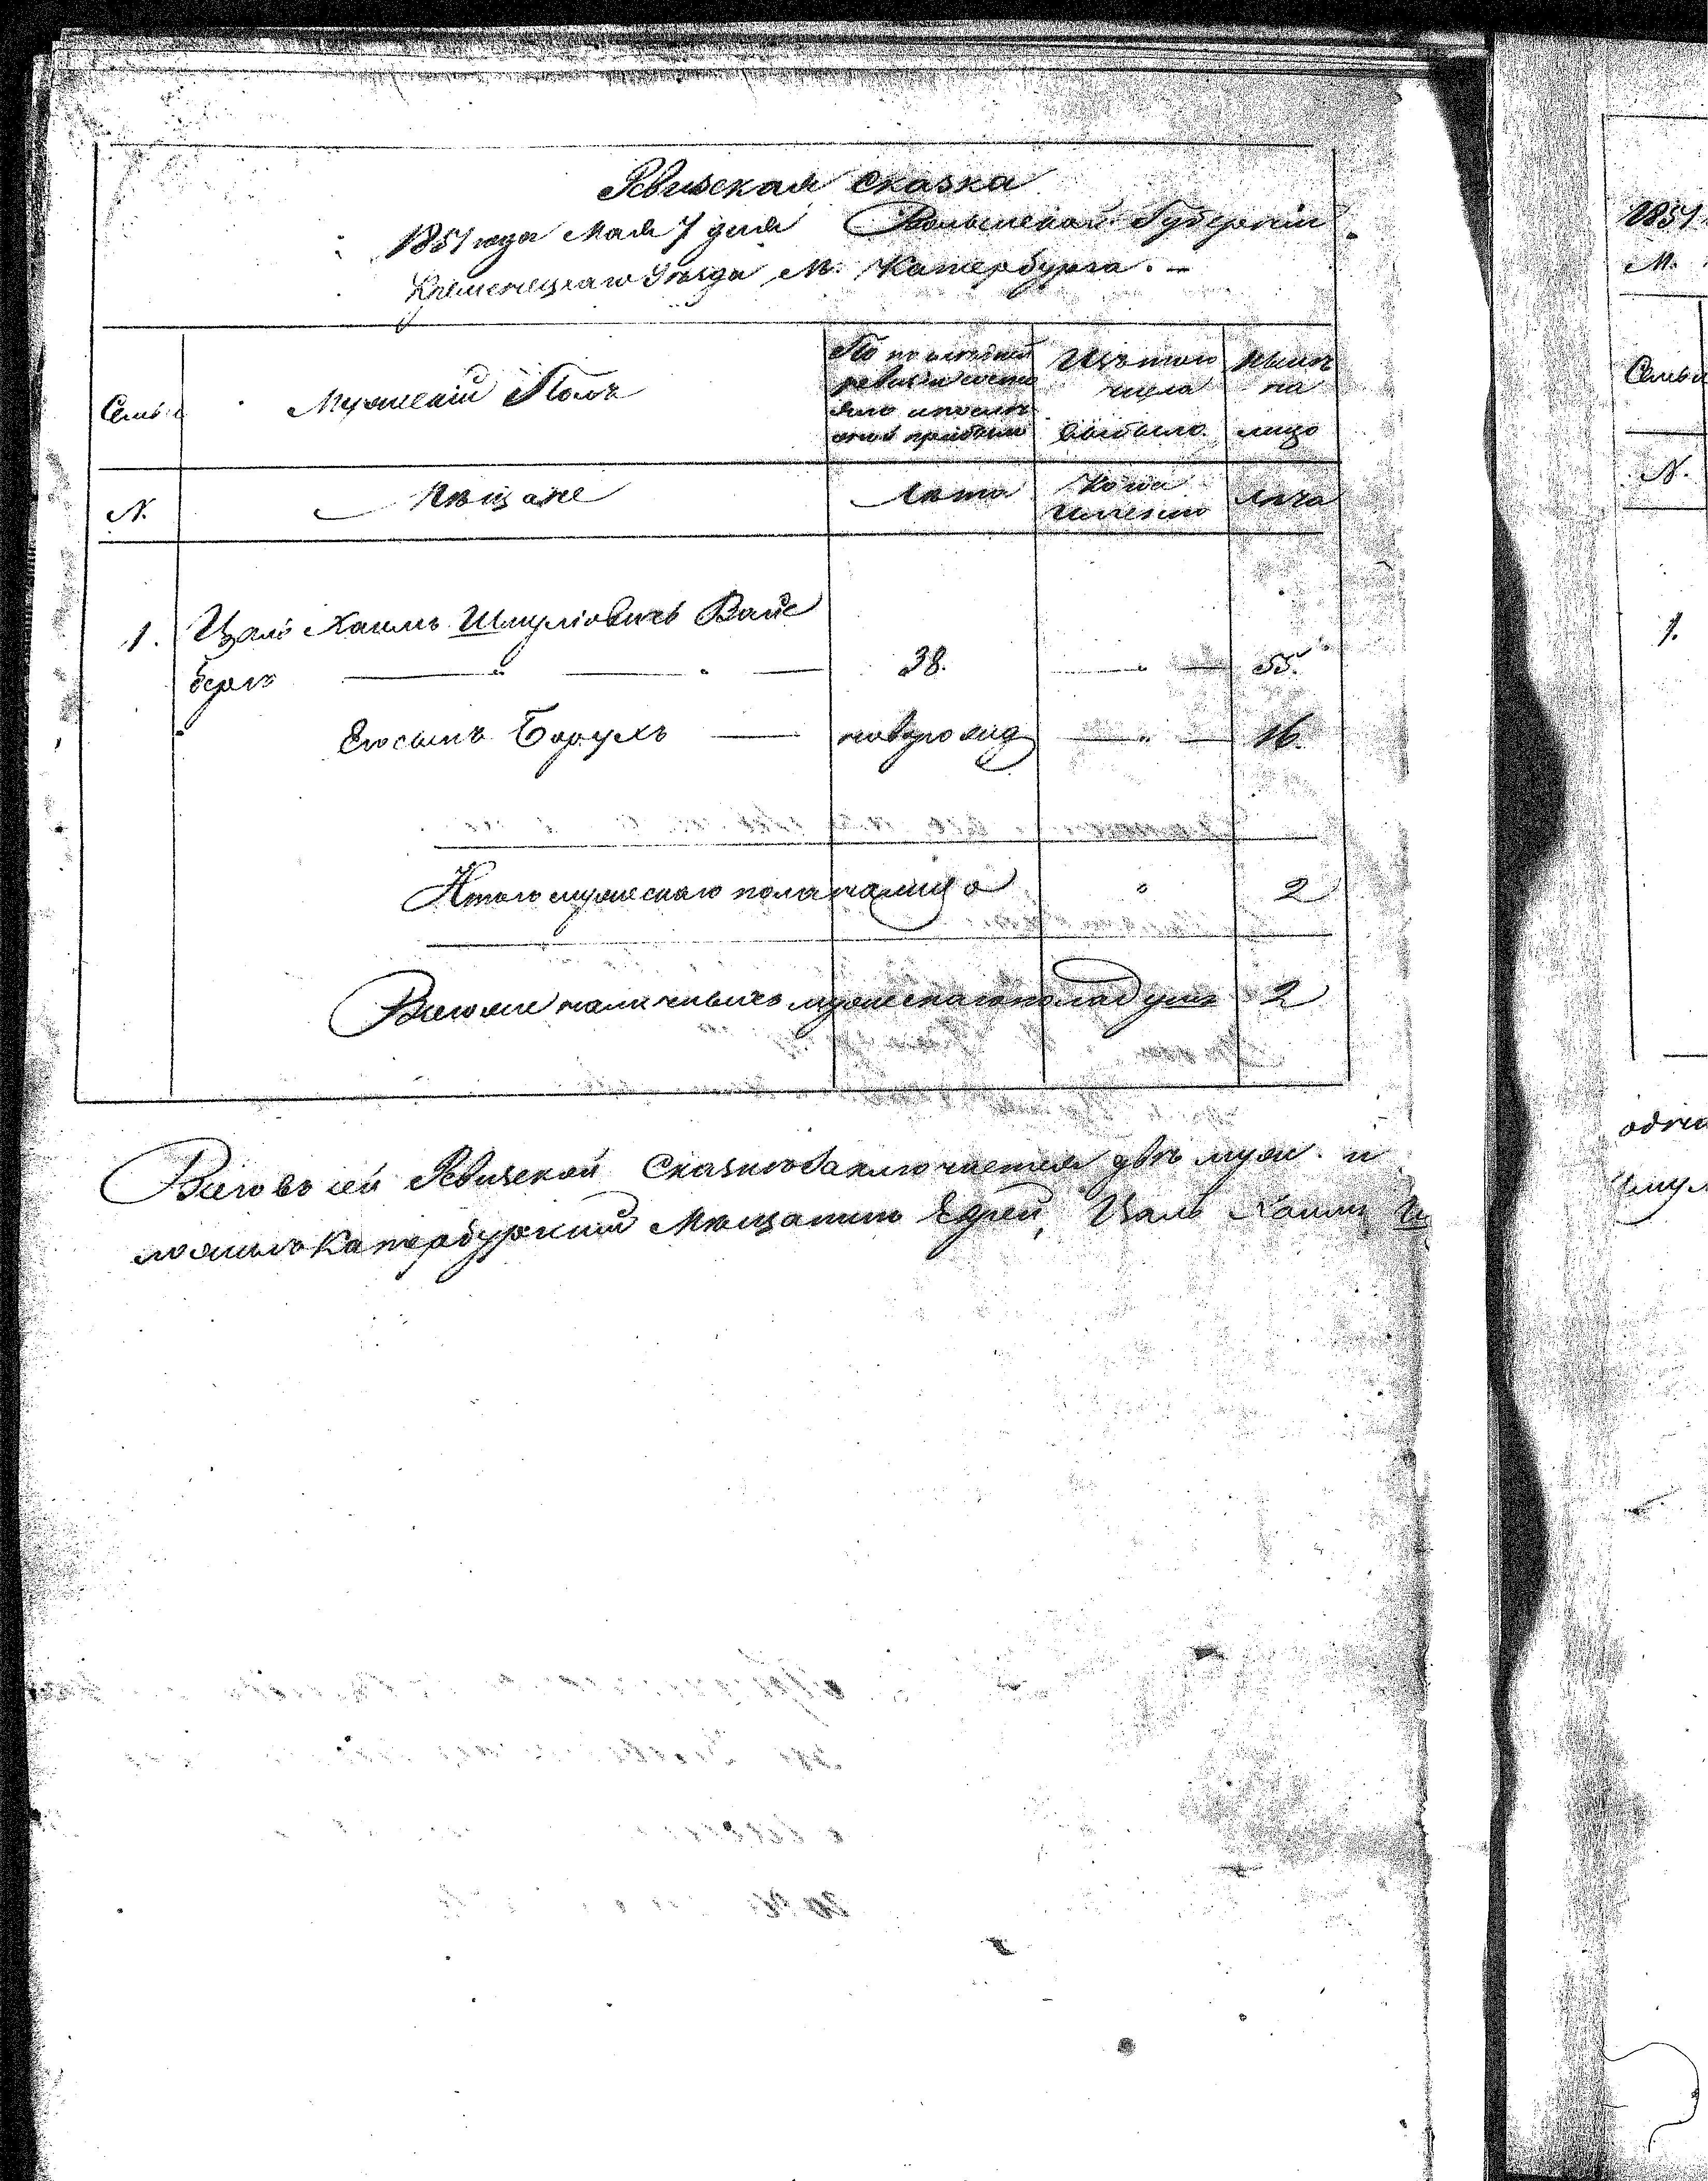 Ревизская сказка
1851 года Мая 7 дня Волынской Губерніи
Кременецкаго Уѣзда М. Катербурга.
Семьи
Мужескій Полъ
По последней ревизіи состояло и после оной прибыло
Изъ того числа выбыло
Нынѣ на лицо
N.
Мѣщане
Лѣта
Когда именно
Лѣта
1. Цаль Хаимъ Шмуліовичъ Вайс
бергъ 38. " 55.
Его сынъ Борухъ новорожд " 16.
Итого мужескаго пола на лицо " 2
Всего же наличныхъ мужескаго пола душъ 2
Всего въ сей Ревизской Сказке заключается двѣ муж. и
Катербурскій Мѣщанинъ Еврей, Цаль Хаимъ
1851
М.
Семьи
N.
1.